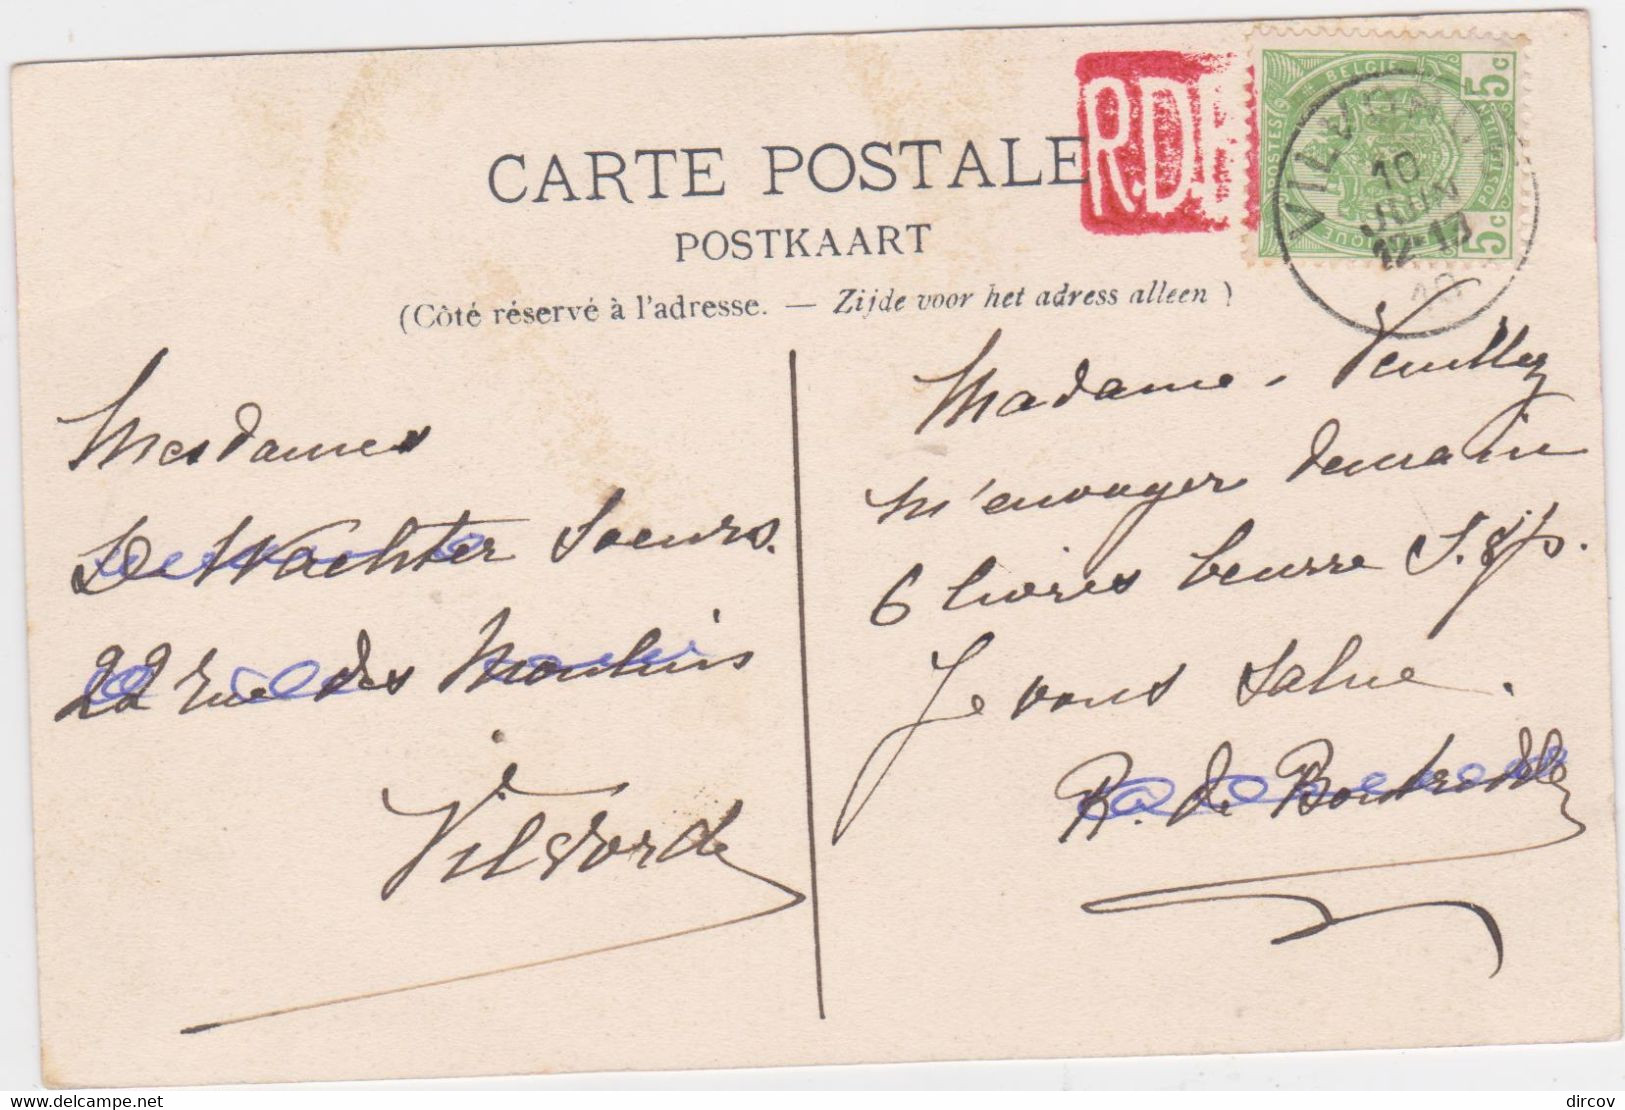 CARTE POSTALE
POSTKAART
(Côté réservé à l'adresse. — Zijde voor het adress alleen)
R.D.
BELGIE
POSTES
5c
5c
VILVORDE
10
JUIN
12-13
Mesdames
De Wachter Soeurs.
22 rue des Moulins
Vilvorde
Madame. Veuillez
m'envoyer demain
6 livres beurre S.
Je vous salue.
R. de
dircov